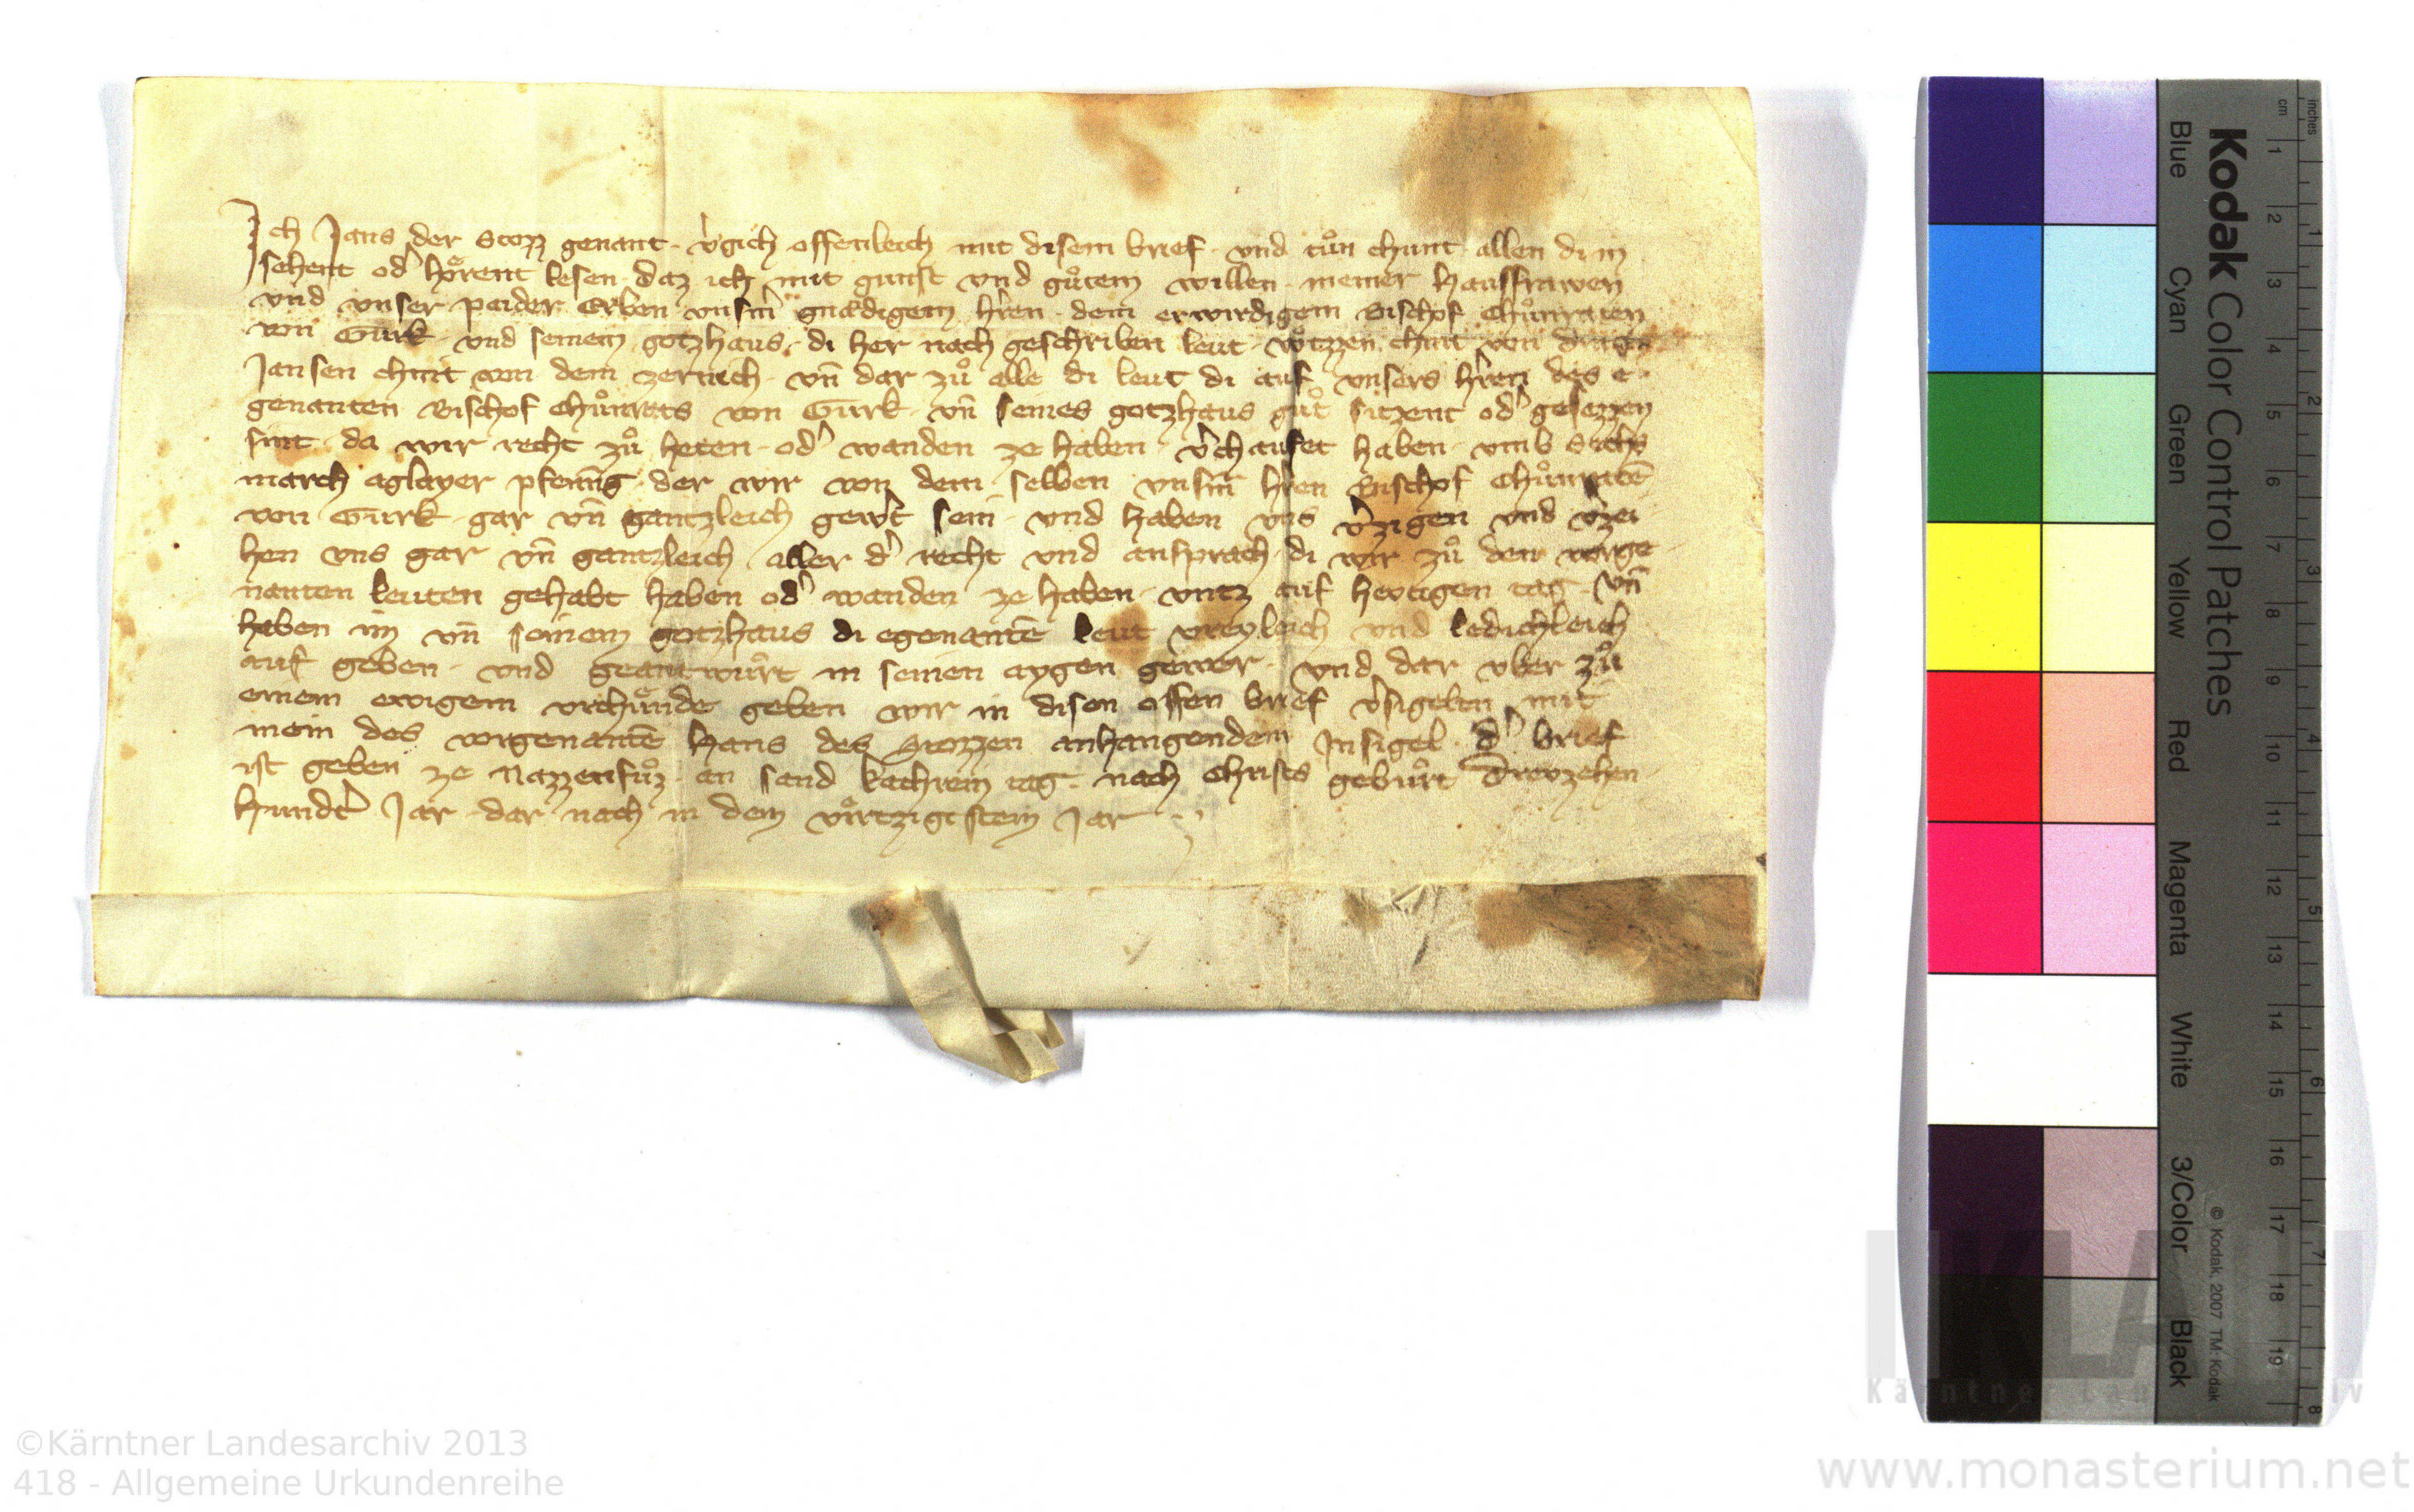 Ich Jans der Stozz genant v̾gich offenleich mit disem brief vnd tuͦn chunt allen di in
sehent od̾ hoͤrent lesen daz ich mit gunst vnd guͦtem willen meiner Hausfrawen
vnd vnser paider Erben vnsm̄ gnaͤdigem h̾ren dem erwirdigem Bischof Chuͦnraten
von Gurk vnd seinem gotzhaus di her nach geschriben leut chint von
Jansen chint von dem vn̄ dar zuͦ alle di leut di auf vnsers h̾ren des e
genanten Bischof Chuͦnrats von Gurk vn̄ seines gotzhaus guͦt sitzent od̾ gesezzen
sint da wir recht zuͦ heten od̾ wanden ze haben v̾chaufet haben vmb Sechs
march aglayer pfenn̄g der wir von dem selben vnsm̄ h̾ren Bischof Chuͦnratē
von Gurk gar vn̄ gantzleich gew̾t sein vnd haben vns v̾zigen vnd v̾zei
hen vns gar vn̄ gantzleich aller d̾ recht vnd ansprach di wir zuͦ den vorge
nanten leuten gehabt haben od̾ wanden ze haben vntz auf hevtigen tag vn̄
haben im vn̄ seinem gotzhaus di egenantē leut vreyleich vnd ledichleich
auf geben vnd geantwuͤrt in seinen aygen gewer vnd dar vber zuͦ
einem ewigem vrchuͤnde geben wir in disen offen brief v̾sigelten mit
mein des vorgenantē Hans des Stozzen anhangendem Insigel d̾ brief
ist geben ze Nazzenfuͦz an sand Kathrein tag nach Christs gebuͤrt Drevzehen
Hundt̾ Jar dar nach in dem virtzigistem Jar
Kodak Color Control Patches
Blue Cyan Green Yellow Red Magenta White 3/Color Black
© Kodak, 2007 TM: Kodak
inches 1 2 3 4 5 6 7 8
cm 1 2 3 4 5 6 7 8 9 10 11 12 13 14 15 16 17 18 19
KLA
©Kärntner Landesarchiv 2013
418 - Allgemeine Urkundenreihe
www.monasterium.net